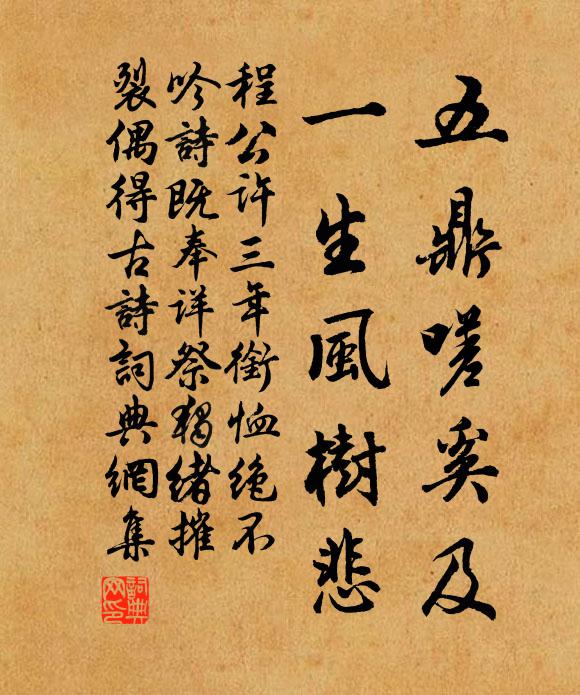 五鼎嗟奚及
一生風樹悲
程公許三年銜恤絶不
吟詩既奉祥祭猶緒摧
裂偶得古詩詞典網集
詞典
网印